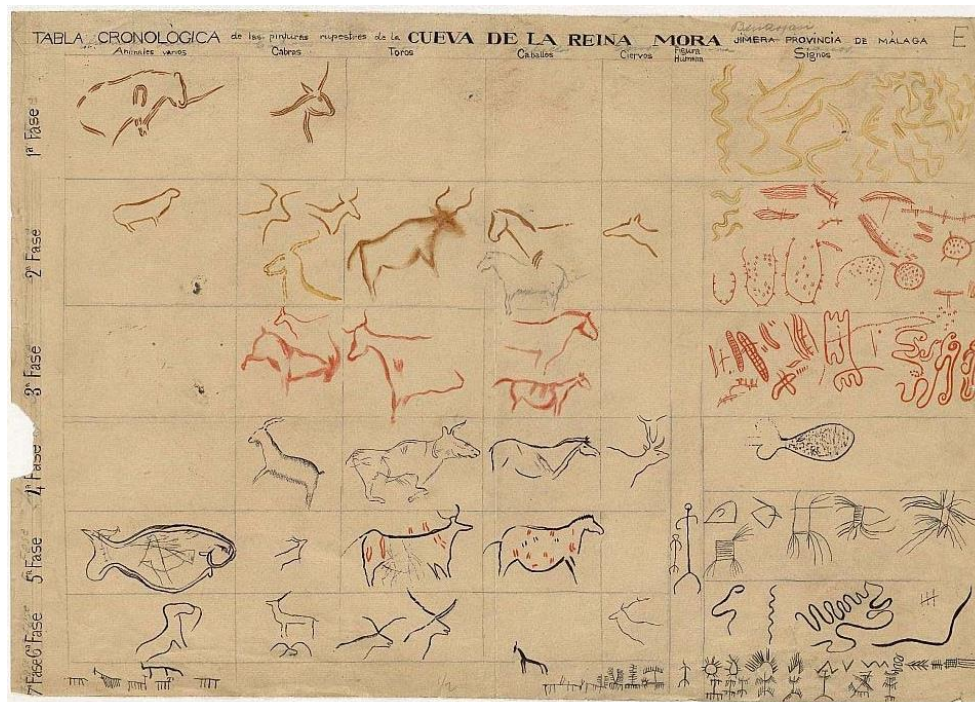 TABLA CRONOLÒGICA de las pinturas rupestres de la CUEVA DE LA REINA MORA JIMERA PROVINCIA DE MÁLAGA E
Animales varios Cabras Toros Caballos Ciervos Figura Humana Signos
1ª Fase
2ª Fase
3ª Fase
4ª Fase
5ª Fase
6ª Fase
7ª Fase
1/2